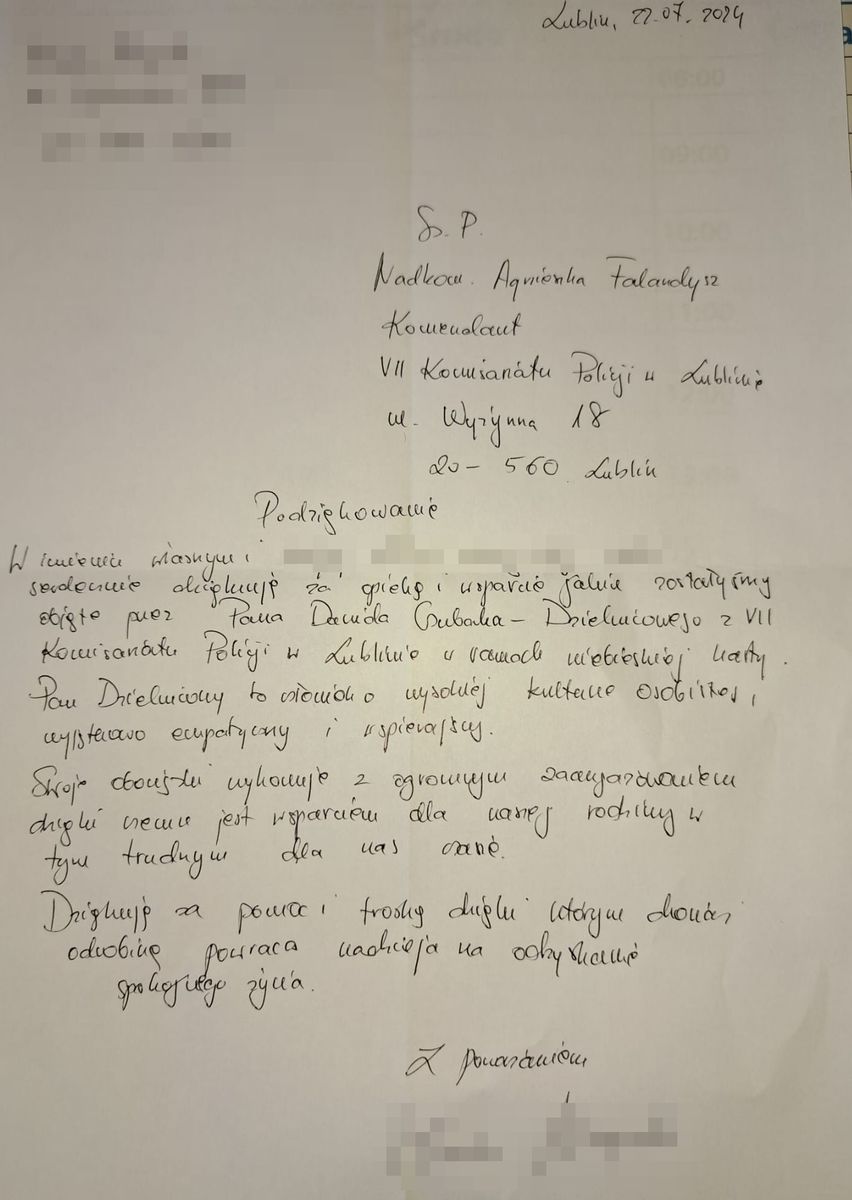 Lublin, 22.07.2024
Sz. P.
Nadkom. Agnieszka Falandysz
Komendant
VII Komisariatu Policji w Lublinie
ul. Wyżynna 18
20-560 Lublin
Podziękowanie
W imieniu własnym i
serdecznie dziękuję za opiekę i wsparcie jakie zostałyśmy
objęte przez Pana Dawida - Dzielnicowego z VII
Komisariatu Policji w Lublinie w ramach niebieskiej karty.
Pan Dzielnicowy to człowiek o wysokiej kulturze osobistej,
wyjątkowo empatyczny i wspierający.
Swoje obowiązki wykonuje z ogromnym zaangażowaniem
dzięki czemu jest wsparciem dla naszej rodziny w
tym trudnym dla nas czasie.
Dziękuję za pomoc i troskę dzięki którym chociaż
odrobinę powraca nadzieja na odzyskanie
spokojnego życia.
Z poważaniem